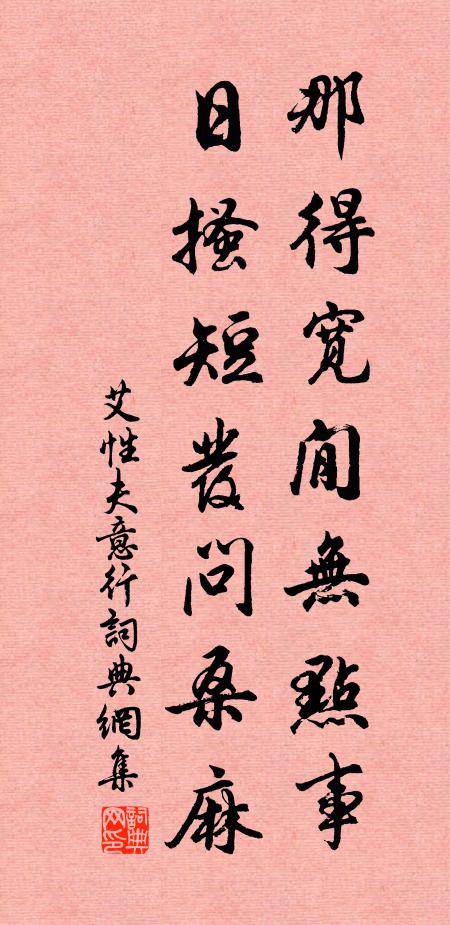 那得寬閒無點事
日搔短發問桑麻
艾性夫意行詞典網集
詞典网印